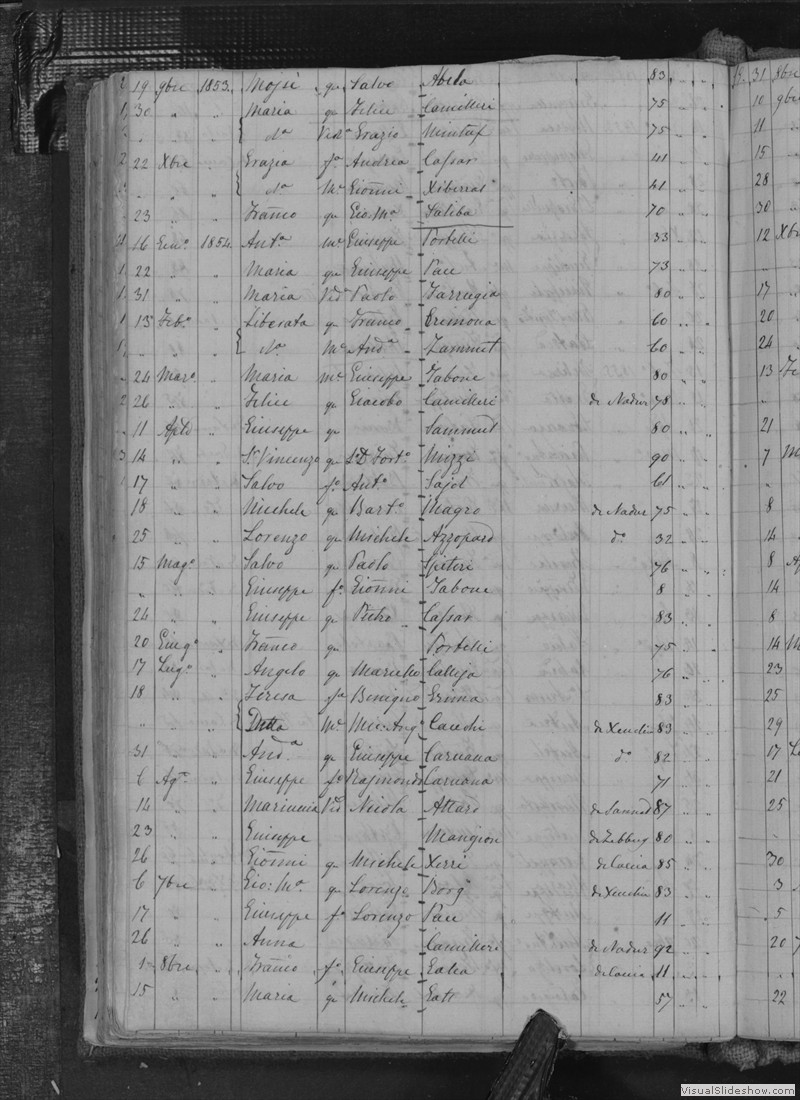 19 9bre 1853. Mojsè qm Salvo Abela 83 31 9bre
30 " " Maria qm Felice Camilleri 75 10 9bre
" " da Veda Grazio Mintuf 75 11
22 Xbre Grazia fa Andrea Cassar 41 15
" " da Me Gioñni Xiberras 41 28
23 " Franco qm Gio Ma Saliba 70 30
16 Genº 1854. Anta me Giuseppe Portelli 33 12 Xbre
22 " " Maria qm Giuseppe Pau 73 "
31 " " Maria Veda Paolo Farrugia 80 17
13 Febº " Liberata qm Franco Grimona 60 20
" " " Da Me Anda Zammut 60 24
24 Marº " Maria me Giuseppe Tabone 80 13
26 " " Felice qm Giacobo Camilleri de Nadur 78 "
11 Aple " Giuseppe qm Sammut 80 21
14 " " Sr Vincenzo qm Sr Dr Fortº Mizzi 90 7
17 " " Salvo fo Antº 61 "
18 " " Michele qm Bartº Magro de Nadur 75 8
25 " " Lorenzo qm Michele Azzopard do 32 14
15 Magº " Salvo qm Paolo Spiteri 76 8
" " " Giuseppe fo Gioñni Tabone 8 14
24 " " Giuseppe qm Pietro Cassar 83 8
20 Giugº " Franco qm Portelli 75 14
17 Lugº " Angelo qm Marcello Calleja 76 23
18 " " Teresa fa Benigno Grima 83 25
" " " Detta Me Mic. Angº Cauchi de Xeuchia 83 29
31 " " Anda qm Giuseppe Caruana do 82 17
6 Agº " Giuseppe fo Rajmondo Caruana 71 21
14 " " Mariuccia Ved Nicola Attard de Sannat 87 25
23 " " Giuseppe Mangion de Zebbug 80 -
26 " " Gioñni qm Michele Xerri de Caccia 85 30
6 7bre " Gio: Ma qm Lorenzo Borg de Xeuchia 83 3
17 " " Giuseppe fo Lorenzo Pau 11 5
26 " " Anna Camilleri de Nadur 92 20
1 8bre " Franco fo Giuseppe Galea de Caccia 11 "
15 " " Maria qm Michele Gatt 57 22
VisualSlideshow.com